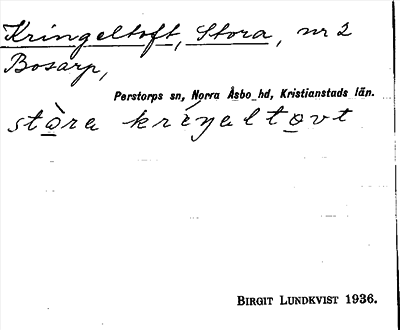 Kringeltoft, Stora, nr 2
Bosarp,
Perstorps sn, Norra Åsbo hd, Kristianstads län.
stòra kríŋaltovt
BIRGIT LUNDKVIST 1936.